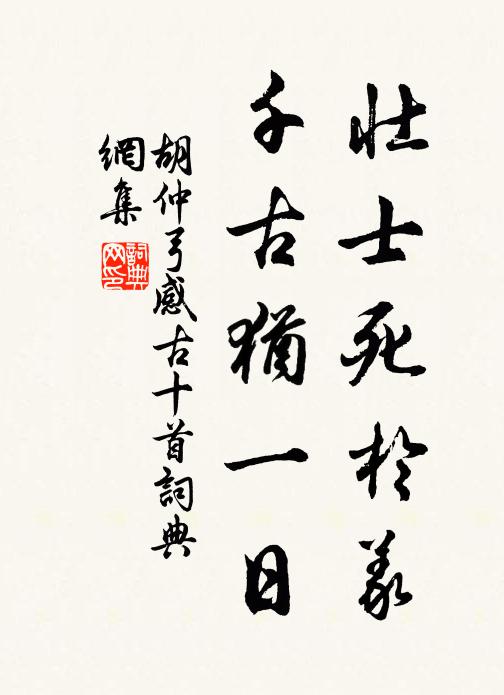 壯士死於義
千古猶一日
胡仲弓感古十首詞典
網集
詞典
网印